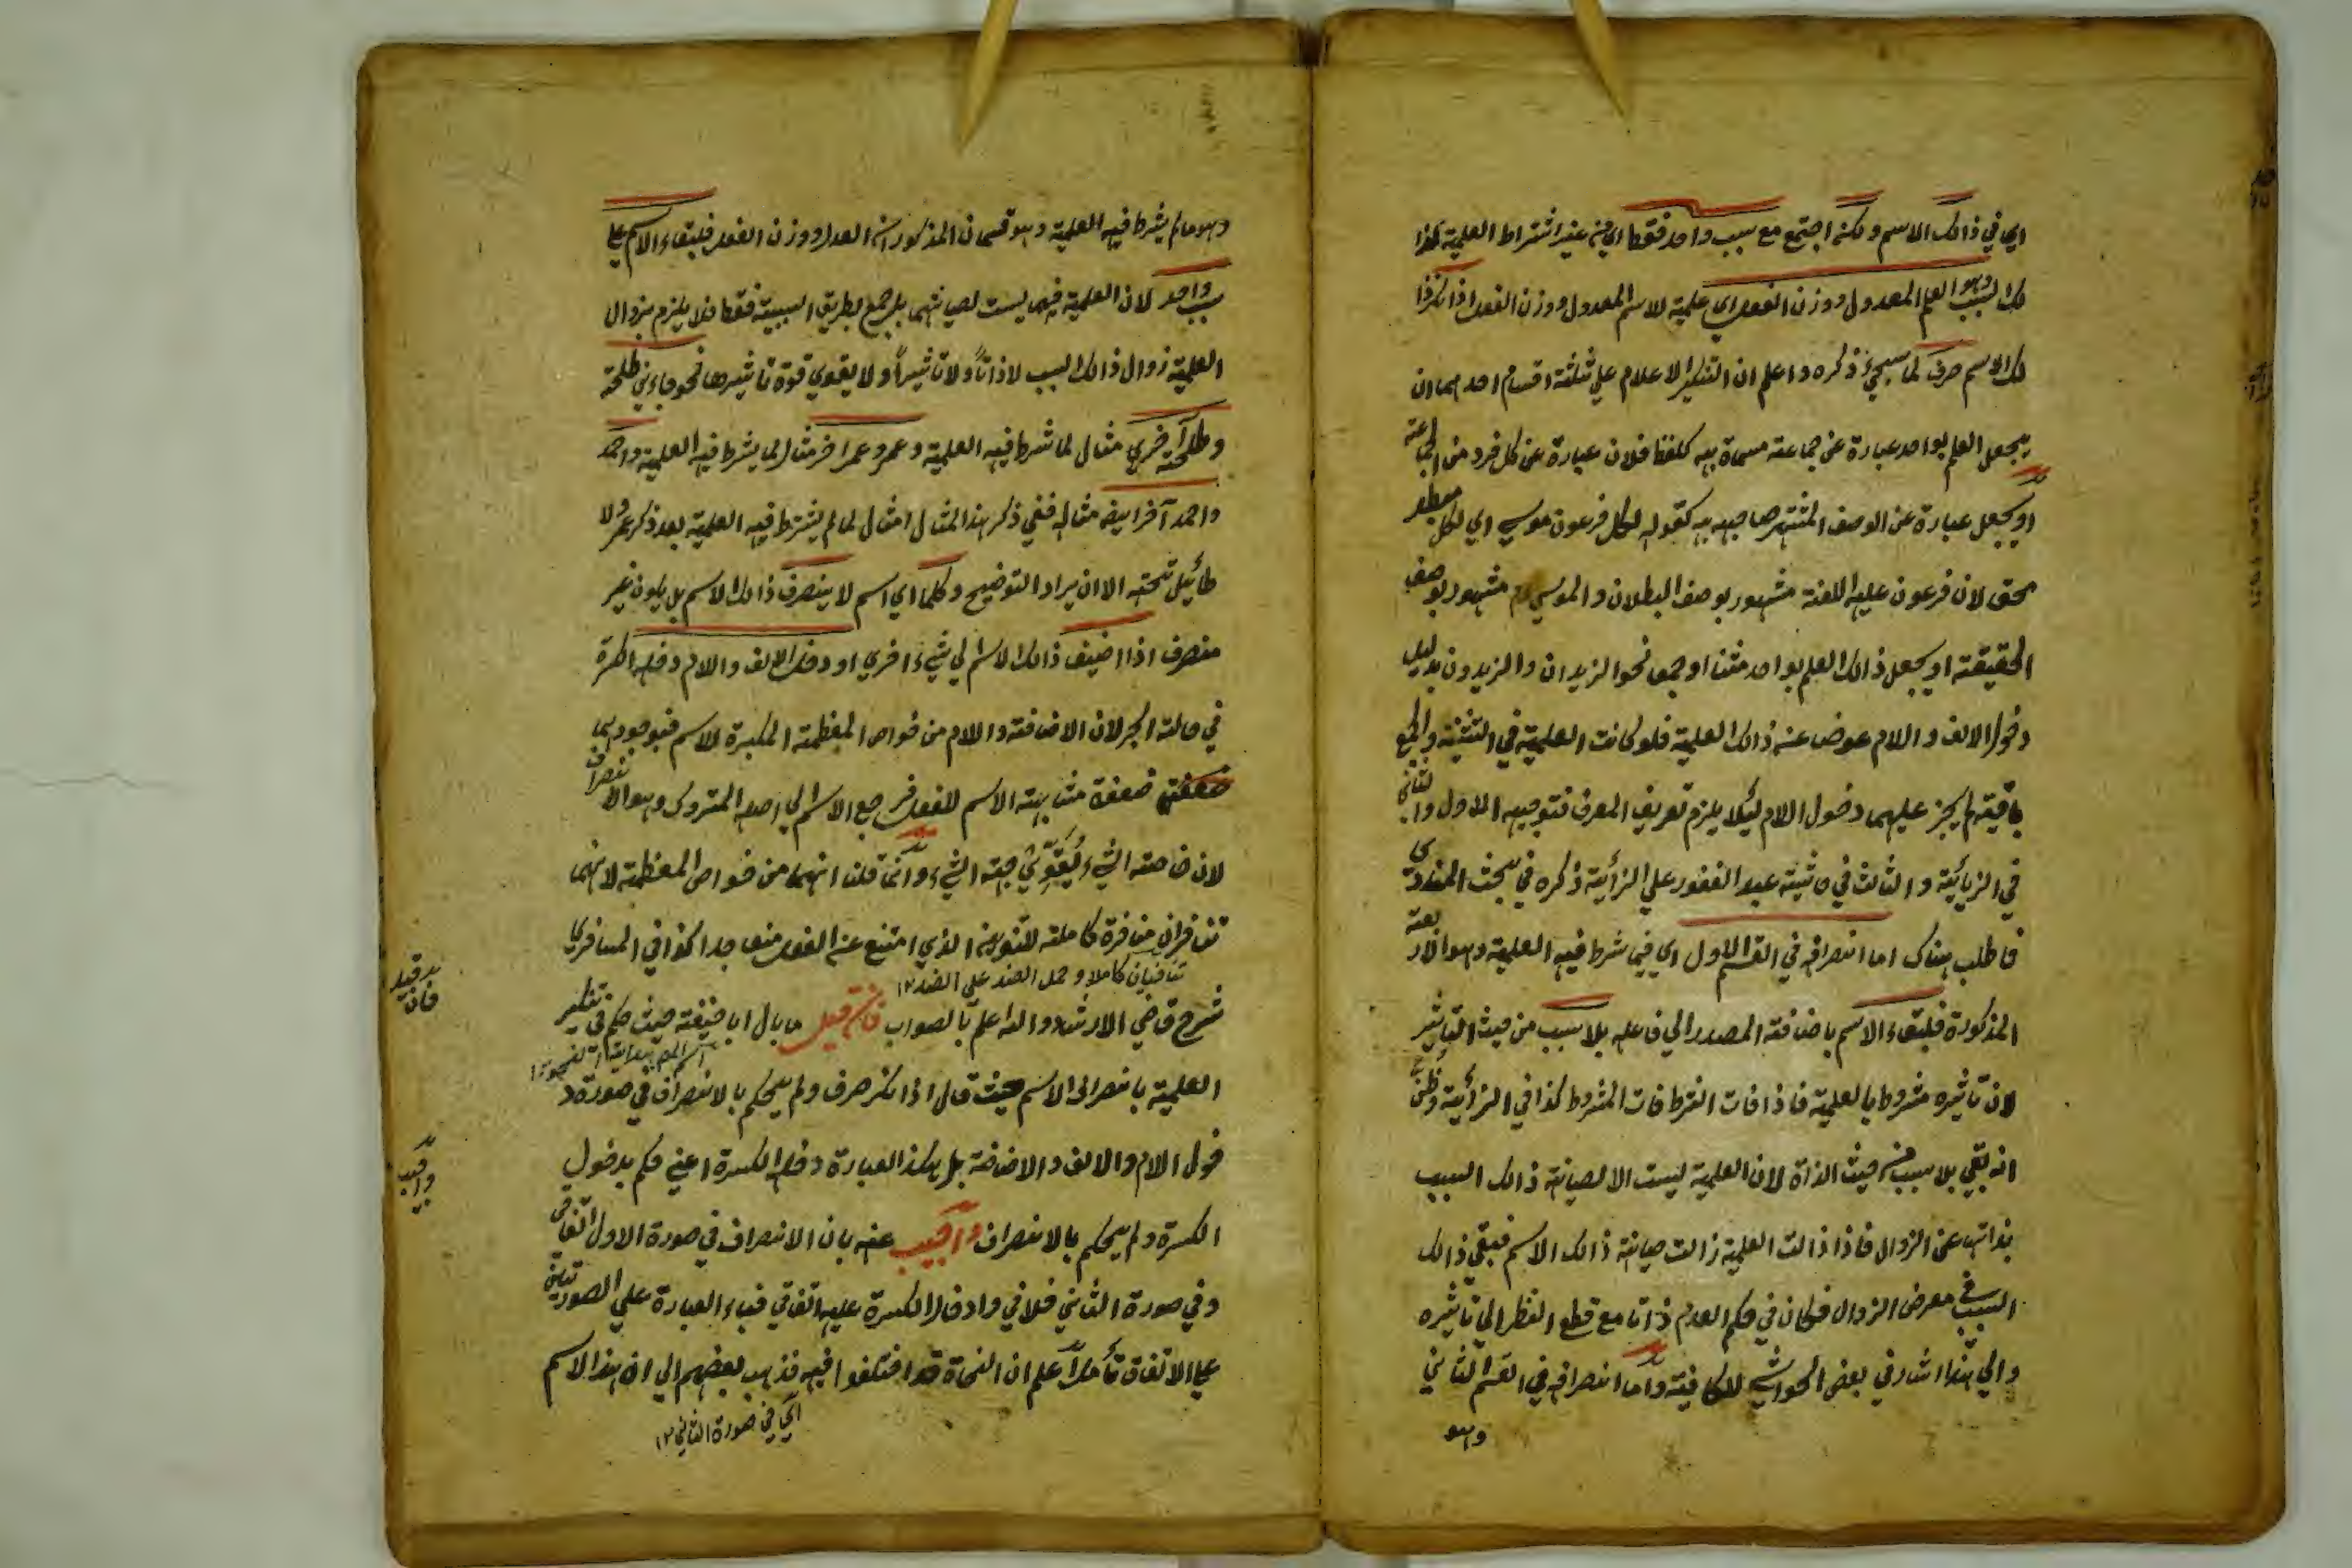 اي في ذالك الاسم ولكنه اجتمع مع سبب واحد فقط اي من غير اشتراط العلمية لهذا
لك السبب وهو العلم المعدول ووزن الفعل اي علمية للاسم المعدول ووزن الفعل اذا نكر ذا
لك الاسم صرف لما سيجيء ذكره واعلم ان التنكير الاعلام علي ثلثة اقسام احدهما ان
يجعل العلم بواحد عبارة عن جماعته مسماة به كلفظ فلان عبارة عن كل فرد من الجماعته
او يجعل عبارة عن الوصف المشتهر صاحبه به كقوله لكل فرعون موسي اي لكل مبطل
محق لان فرعون عليه اللعنة مشهور بوصف البطلان والموسي مشهور بوصف
الحقيقته او يجعل ذالك العلم بواحد مثنا او جمع نحو الزيدان والزيدون بدليل
دخول الالف واللام عوض عنه ذالك العلمية فلو كانت العلمية في التثنية والجمع
باقية لم يجز عليهما دخول اللام ليلا يلزم تعريف المعرف فتوجيه الاول والثاني
في الزيائية والثالث في حاشيته عبد الغفور علي الزائية ذكره في بحث المنادي
فاطلب هناك اما انصرافه في القسم الاول اي فيما شرط فيه العلمية وهو الاربعة
المذكورة فلبقاء الاسم باضافته المصدر الي فاعله بلا سبب من حيث التاثير
لان تاثيره مشروط بالعلمية فاذا فات الشرط فات المشروط كذا في الزائية وظني
انه بقي بلا سبب من حيث الذاة لان العلمية ليست الا لصيانة ذالك السبب
بذاتها عن الزوال فاذا ذالت العلمية زالت صيانة ذالك الاسم فبقي ذالك
السبب في معرض الزوال فكان في حكم العدم ذاتا مع قطع النظر الي تاثيره
والي هذا اشار في بعض الحواشي للكافية واما انصرافه في القسم الثاني
وهو
وهو ما لم يشرط فيه العلمية وهو قسمان المذكوران العدل ووزن الفعل فلبقاء الاسم علي
سبب واحد لان العلمية فيهما ليست لصيانتهما بل جمع بطريق السببية فقط فلا يلزم بزوال
العلمية زوال ذالك السبب لا ذاتاً ولا تاثيراً ولا يقوي قوة تاثيرها نحو جاءني طلحة
وطلحة آخري مثال لما شرط فيه العلمية وعمر وعمر اخر مثال لما يشرط فيه العلمية واحمد
واحمد آخر ايضا مثاله ففي ذكر هذا المثال امثال لما لم يشترط فيه العلمية بعد ذكر عمر ولا
طائيل تحته الا ان يراد التوضيح وكلما اي اسم لا ينصرف ذالك الاسم بل يكون غير
منصرف اذا اضيف ذالك الاسم الي شيء اخري او دخله الالف واللام دخله الكسرة
في حالته الجر لان الاضافته واللام من خواص المعظمته المكبرة للاسم فبوجودهما
ضعفة مشابهته الاسم للفعل فرجع الاسم الي اصله المتروك وهو الانصراف
لان خاصته الشيء يُقَوِّي جهته الشيء وانما قلنا انهما من خواص المعظمية لانهما
تنافران منافرة كاملته للتنوين الذي امتنع عنه الفعل منعا جدا كذا في المسافري
تنافيان كاملا وحمل الضد علي الضد ١٢
شرح قاضي الارشاد والله اعلم بالصواب فان قيل ما بال ابا حنيفته حيث حكم في تنكير
العلمية بانصراف الاسم حيث قال اذا نكر صرف ولم يحكم بالانصراف في صورة د
خول اللام والالف والاضافة بل هكذا العبارة دخله الكسرة اعني حكم بدخول
الكسرة ولم يحكم بالانصراف واجيب عنه بان الانصراف في صورة الاول اتفاقي
وفي صورة الثاني خلافي وادخال الكسرة عليه اتفاقي فبناء العبارة علي الصورتين
علي الاتفاق تأمل اعلم ان النحاة قد اختلفوا فيه فذهب بعضهم الي ان هذا الاسم
اي في صورة الثاني ١٢
فان قيل
واجيب